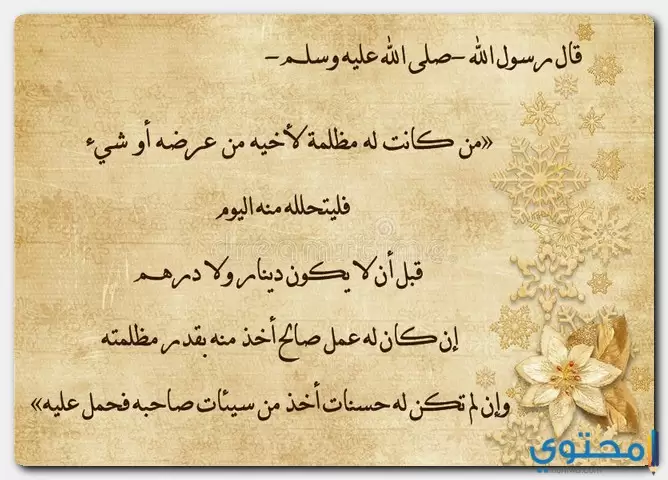 قال رسول الله -صلى الله عليه وسلم-
«من كانت له مظلمة لأخيه من عرضه أو شيء
فليتحلله منه اليوم
قبل أن لا يكون دينار ولا درهم
إن كان له عمل صالح أخذ منه بقدر مظلمته
وإن لم تكن له حسنات أخذ من سيئات صاحبه فحمل عليه»
محتوى